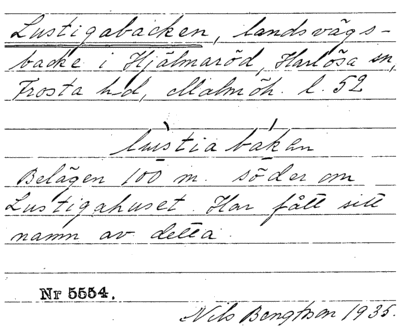 Lustigabacken, landsvägs-
backe i Hjälmaröd, Harlösa sn,
Frosta hd, Malmöh. l. 52
lùstia bákan
Belägen 100 m. söder om
Lustigahuset. Har fått sitt
namn av detta.
Nr 5554.
Nils Bengtson 1935.